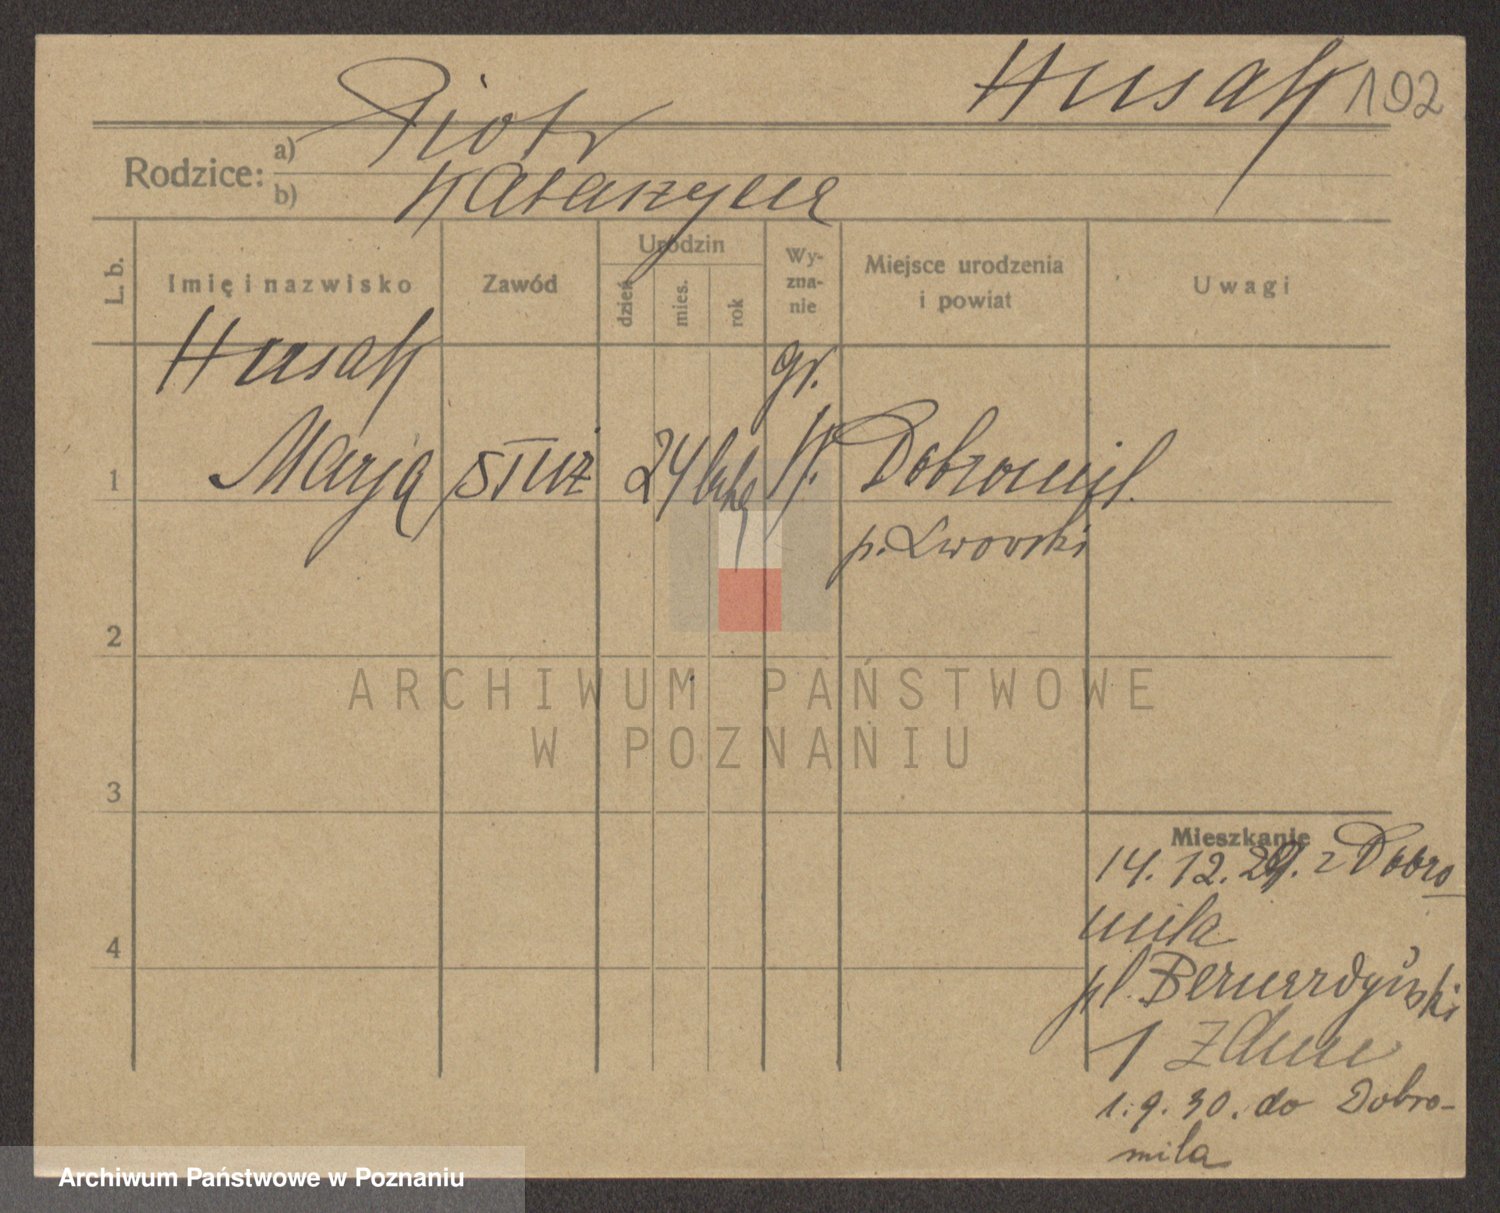 Husak 192
Rodzice: a) Piotr
b) Katarzyna
L. b.
Imię i nazwisko
Zawód
Urodzin
dzień
mies.
rok
Wy-
zna-
nie
Miejsce urodzenia
i powiat
Uwagi
Husak gr.
1 Marja służ 24 Dobromil.
p. Lwowski
2
ARCHIWUM PAŃSTWOWE
W POZNANIU
3
Mieszkanie
14. 12. 29. z Dobro
mila
4
pl. Bernardyński
1 Zdun
1. 9. 30. do Dobro-
mila
Archiwum Państwowe w Poznaniu